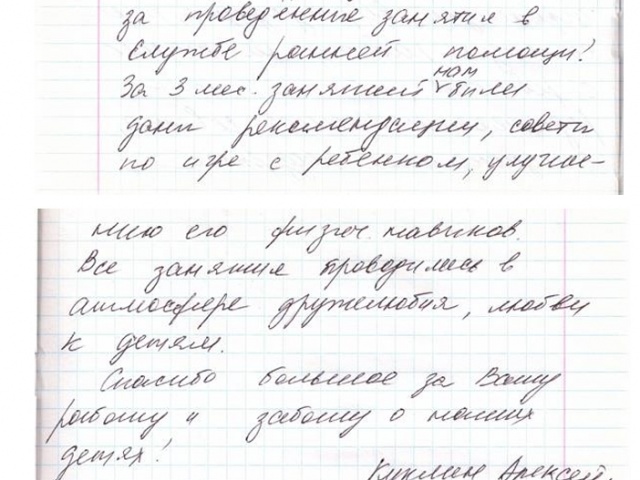 за проведение занятия в
службе ранней помощи!
За 3 мес. занятий нам были
даны рекомендации, советы
по игре с ребенком, улучше-
нию его физич. навыков.
Все занятия проводились в
атмосфере дружелюбия, любви
к детям.
Спасибо большое за Вашу
работу и заботу о наших
детях!
Куклин Алексей.